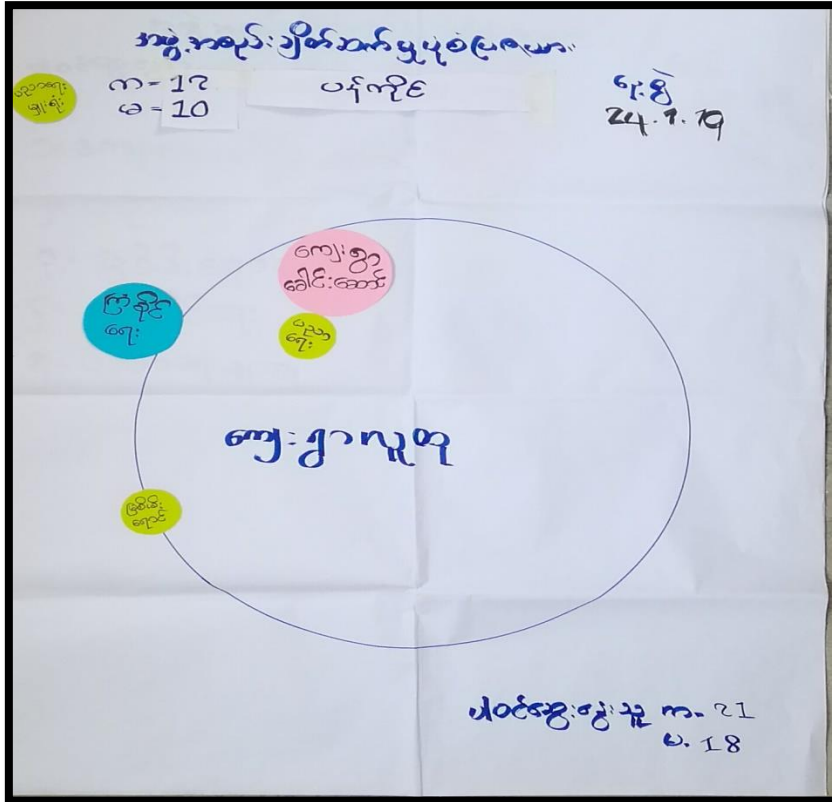 အဖွဲ့အစည်းချိတ်ဆက်မှုပုံစံပြဇယား
ပညာရေး
မှူးရုံး
က = 12
မ = 10
ပန်ကိုင်
ရှေးရွဲ
24.1.19
ကျေးရွာ
ခေါင်းဆောင်
ကြံ့ခိုင်
ရေး
ပညာ
ရေး
ကျေးရွာလူထု
မြစိမ်း
ရောင်
ပါဝင်ဆွေးနွေးသူ က. 21
မ. 18